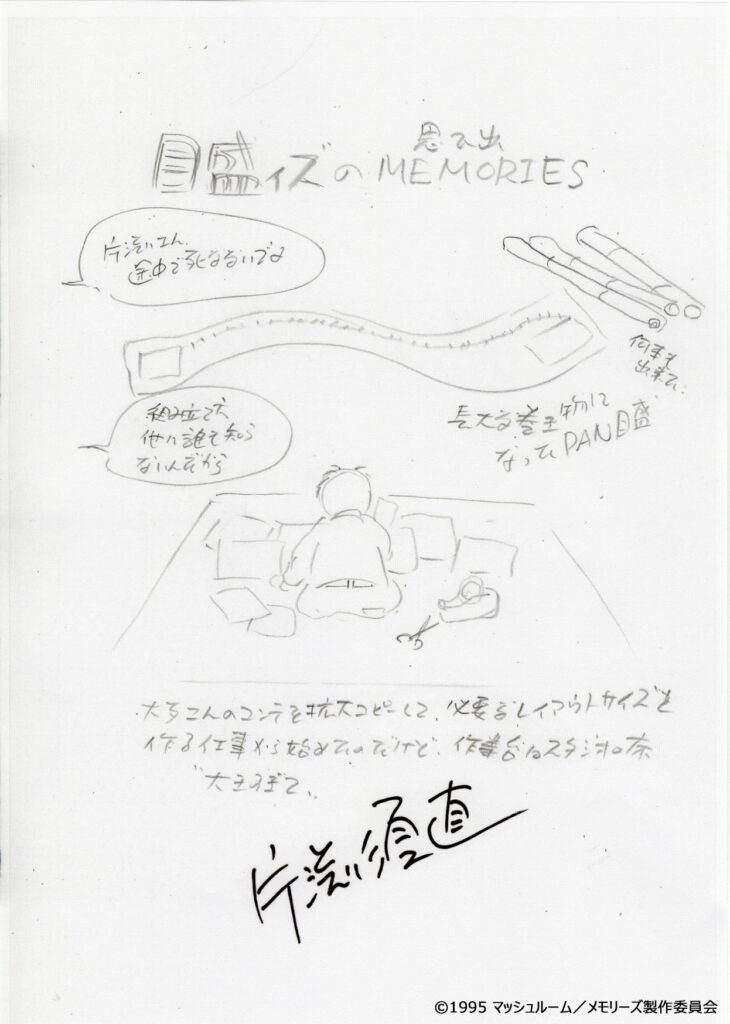 思い出
目盛ィズのMEMORIES
片渕さん、
途中で死なないでな
何本も
出来て..
長大な巻き物に
なったPAN目盛
組み立て方
他に誰も知ら
ないんだから
大友さんのコンテを拡大コピーして、必要なレイアウトサイズを
作る仕事から始めたのだけど、作業台はスタジオの床
大きすぎて、
片渕須直
©1995 マッシュルーム／メモリーズ製作委員会